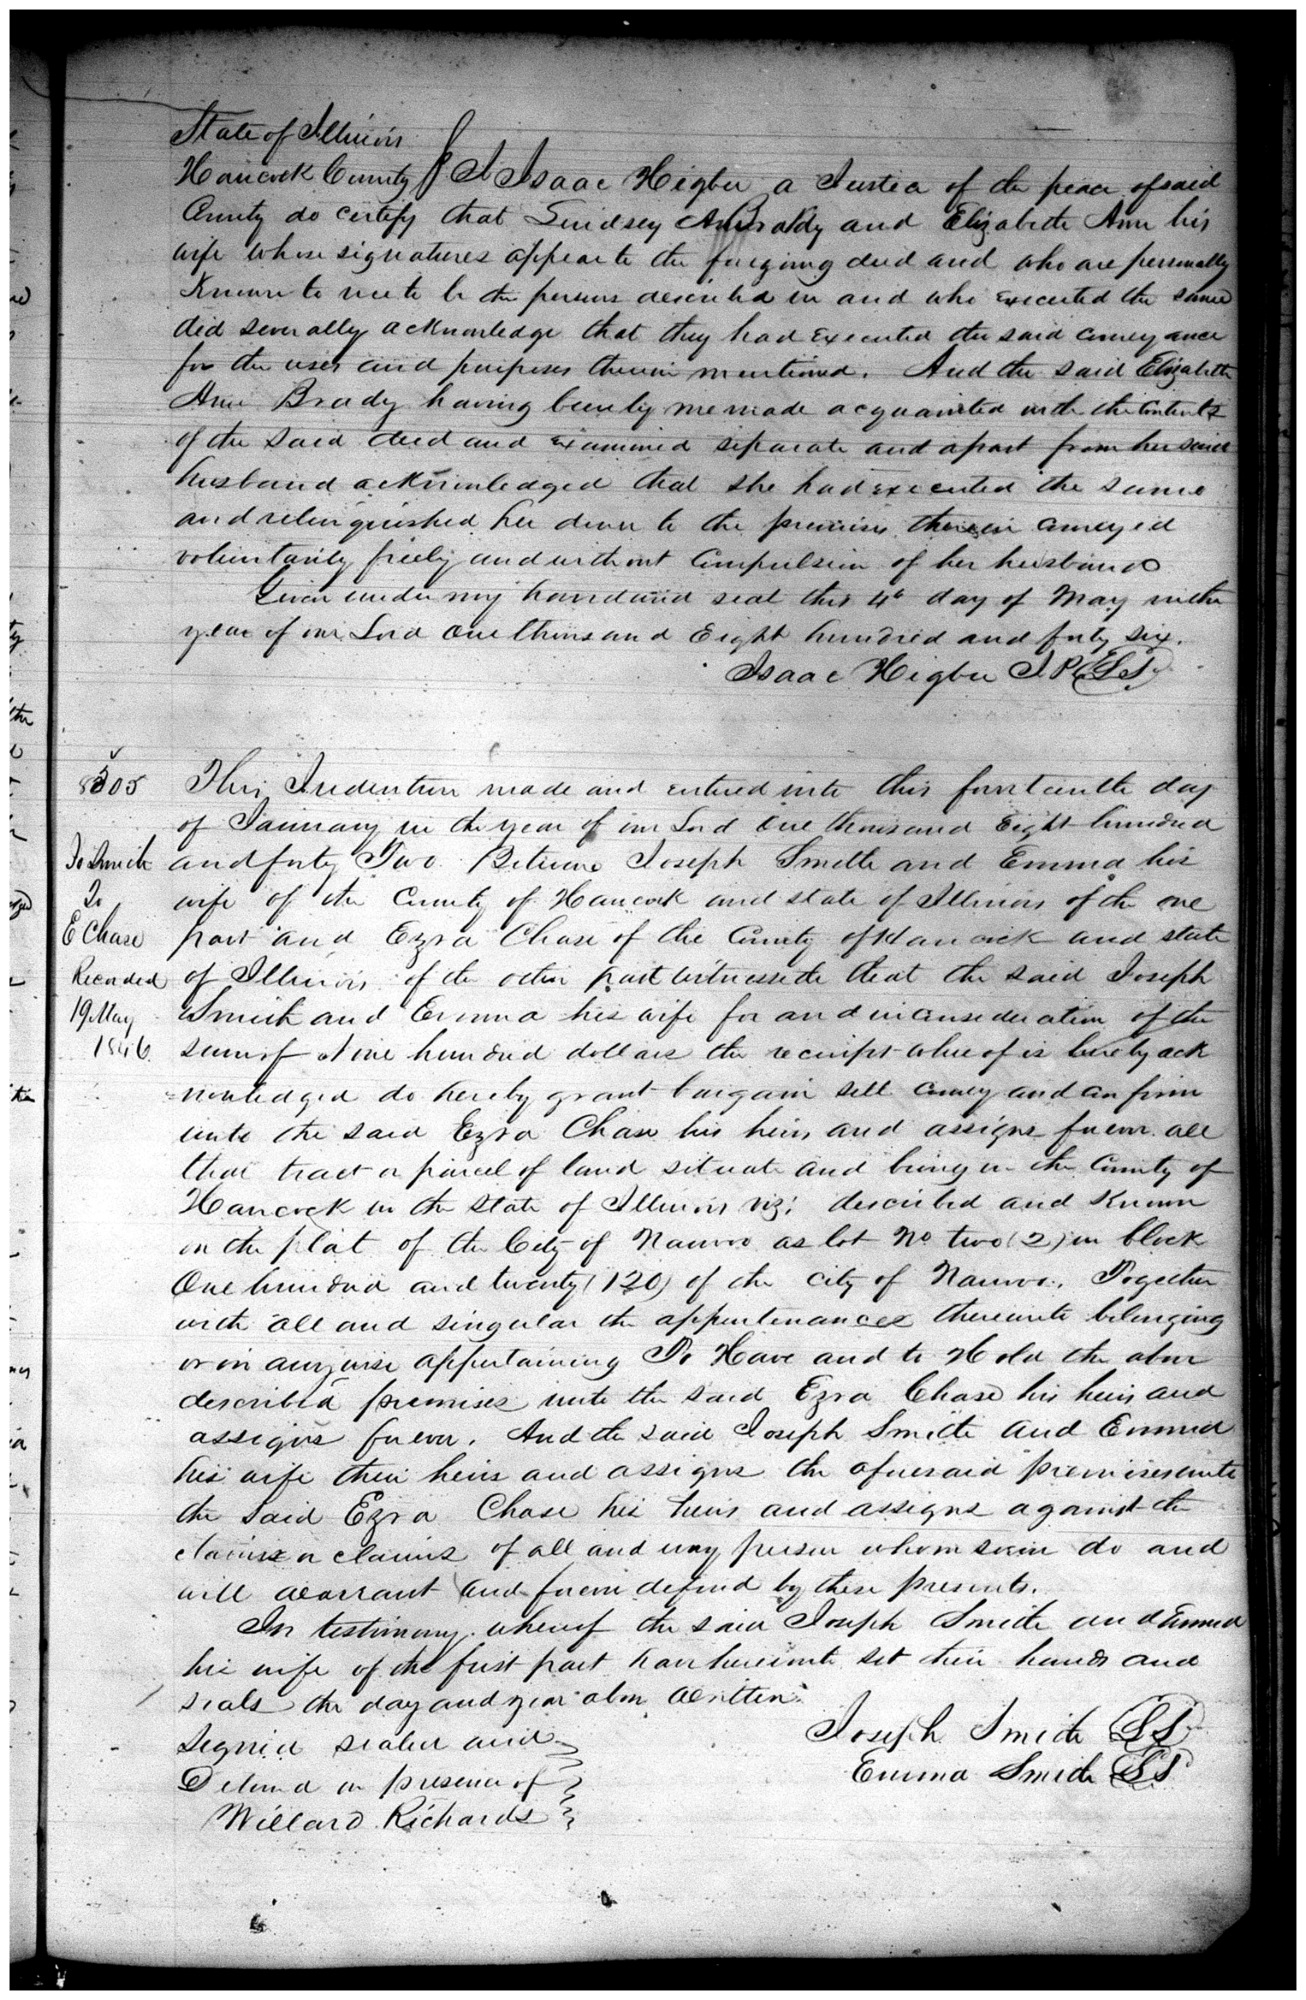 State of Illinois
Hancock County } I Isaac Higbee a Justice of the peace of said
County do certify that Lindsey A Brady and Elizabeth Ann his
wife whose signatures appear to the foregoing deed and who are personally
Known to me to be the persons described in and who executed the same
did severally acknowledge that they had executed the said conveyance
for the uses and purposes therein mentioned. And the said Elizabeth
Ann Brady having been by me made acquainted with the contents
of the said deed and examined separate and apart from her said
husband acknowledged that she had executed the same
and relinquished her dower to the premises therein conveyed
voluntarily freely and without compulsion of her husband
Given under my hand and seal this 4th day of May in the
year of our Lord one thousand Eight hundred and forty six.
Isaac Higbee J.P. (LS)
This Indenture made and entered into this fourteenth day
of January in the year of our Lord One thousand Eight hundred
and forty Two Between Joseph Smith and Emma his
wife of the County of Hancock and state of Illinois of the one
part and Ezra Chase of the County of Hancock and state
of Illinois of the other part witnesseth that the said Joseph
Smith and Emma his wife for and in consideration of the
sum of Nine hundred dollars the receipt whereof is hereby ack
=nowledged do hereby grant bargain sell convey and confirm
unto the said Ezra Chase his heirs and assigns forever all
that tract or parcel of land situate and being in the County of
Hancock in the State of Illinois viz: described and Known
on the plat of the City of Nauvoo as lot No two (2) in block
One hundred and twenty (120) of the city of Nauvoo. Together
with all and singular the appurtenances thereunto belonging
or in anywise appertaining To Have and to Hold the above
described premises unto the said Ezra Chase his heirs and
assigns forever. And the said Joseph Smith and Emma
his wife their heirs and assigns the aforesaid premises unto
the said Ezra Chase his heirs and assigns against the
claims or claims of all and every person whomsoever do and
will warrant and forever defend by these presents.
In testimony whereof the said Joseph Smith and Emma
his wife of the first part have hereunto set their hands and
seals the day and year above written.
Joseph Smith (LS)
Emma Smith (LS)
Signed sealed and
Delivered in presence of
Willard Richards
Jo Smith
To
E Chase
Recorded
19 May
1846.